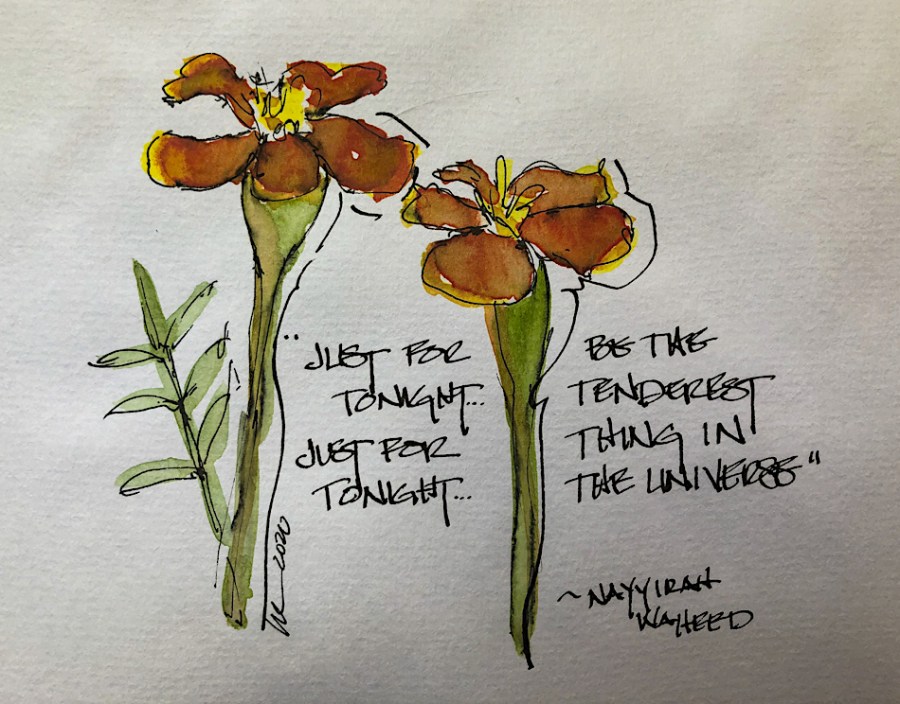 "JUST FOR
TONIGHT...
JUST FOR
TONIGHT...
BE THE
TENDEREST
THING IN
THE UNIVERSE"
~NAYYIRAH
WAHEED
2020